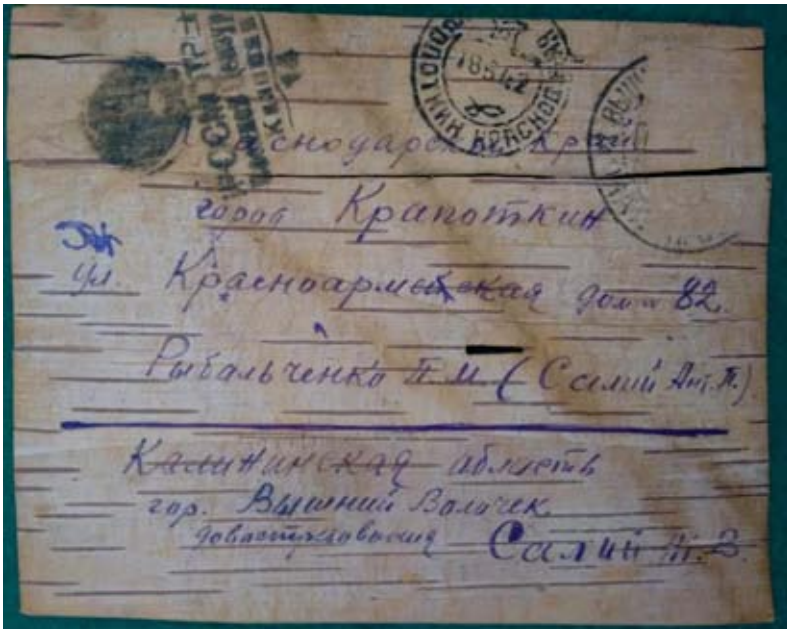 18 6 42
КРАСНОД
Краснодарский Край
город Крапоткин
ул. Красноармейская дом 82.
Рыбальченко П. М (Салий Ант. П.)
Калининская область
гор. Вышний Волочек
довостребования Салий